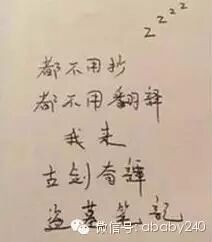 z z z z
都不用抄
都不用翻譯
我来
古剑奇譚
盗墓笔記
微信号: ababy240